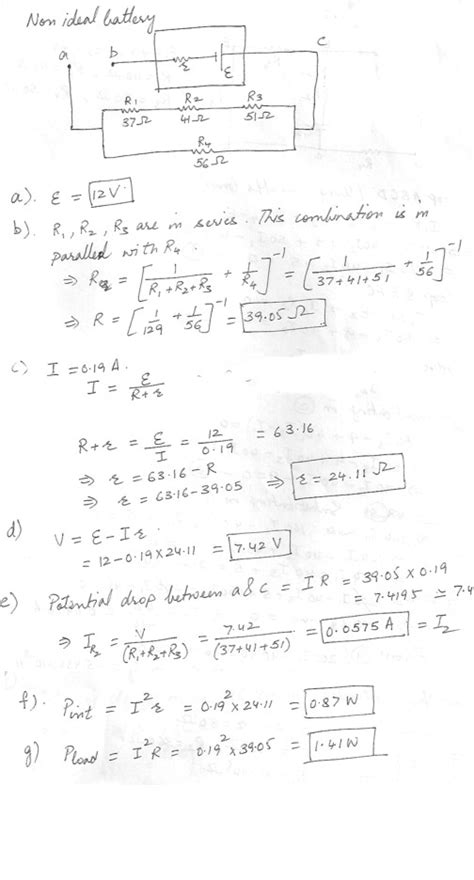 Non ideal battery
a b c
r ε
R1 R2 R3
37Ω 41Ω 51Ω
R4
56Ω
a). ε = 12V
b). R1, R2, R3 are in series. This combination is in
parallel with R4.
⇒ Req = [1/(R1+R2+R3) + 1/R4]^-1 = [1/(37+41+51) + 1/56]^-1
⇒ R = [1/129 + 1/56]^-1 = 39.05 Ω
c) I = 0.19 A.
I = ε/(R+r)
R+r = ε/I = 12/0.19 = 63.16
⇒ r = 63.16 - R
⇒ r = 63.16 - 39.05 ⇒ r = 24.11 Ω
d) V = ε - Ir
= 12 - 0.19 × 24.11 = 7.42 V
e) Potential drop between a & c = IR = 39.05 × 0.19
= 7.4195 ≃ 7.4
⇒ IR2 = V/(R1+R2+R3) = 7.42/(37+41+51) = 0.0575 A = I2
f). Pint = I²r = 0.19² × 24.11 = 0.87 W
g) Pload = I²R = 0.19² × 39.05 = 1.41 W